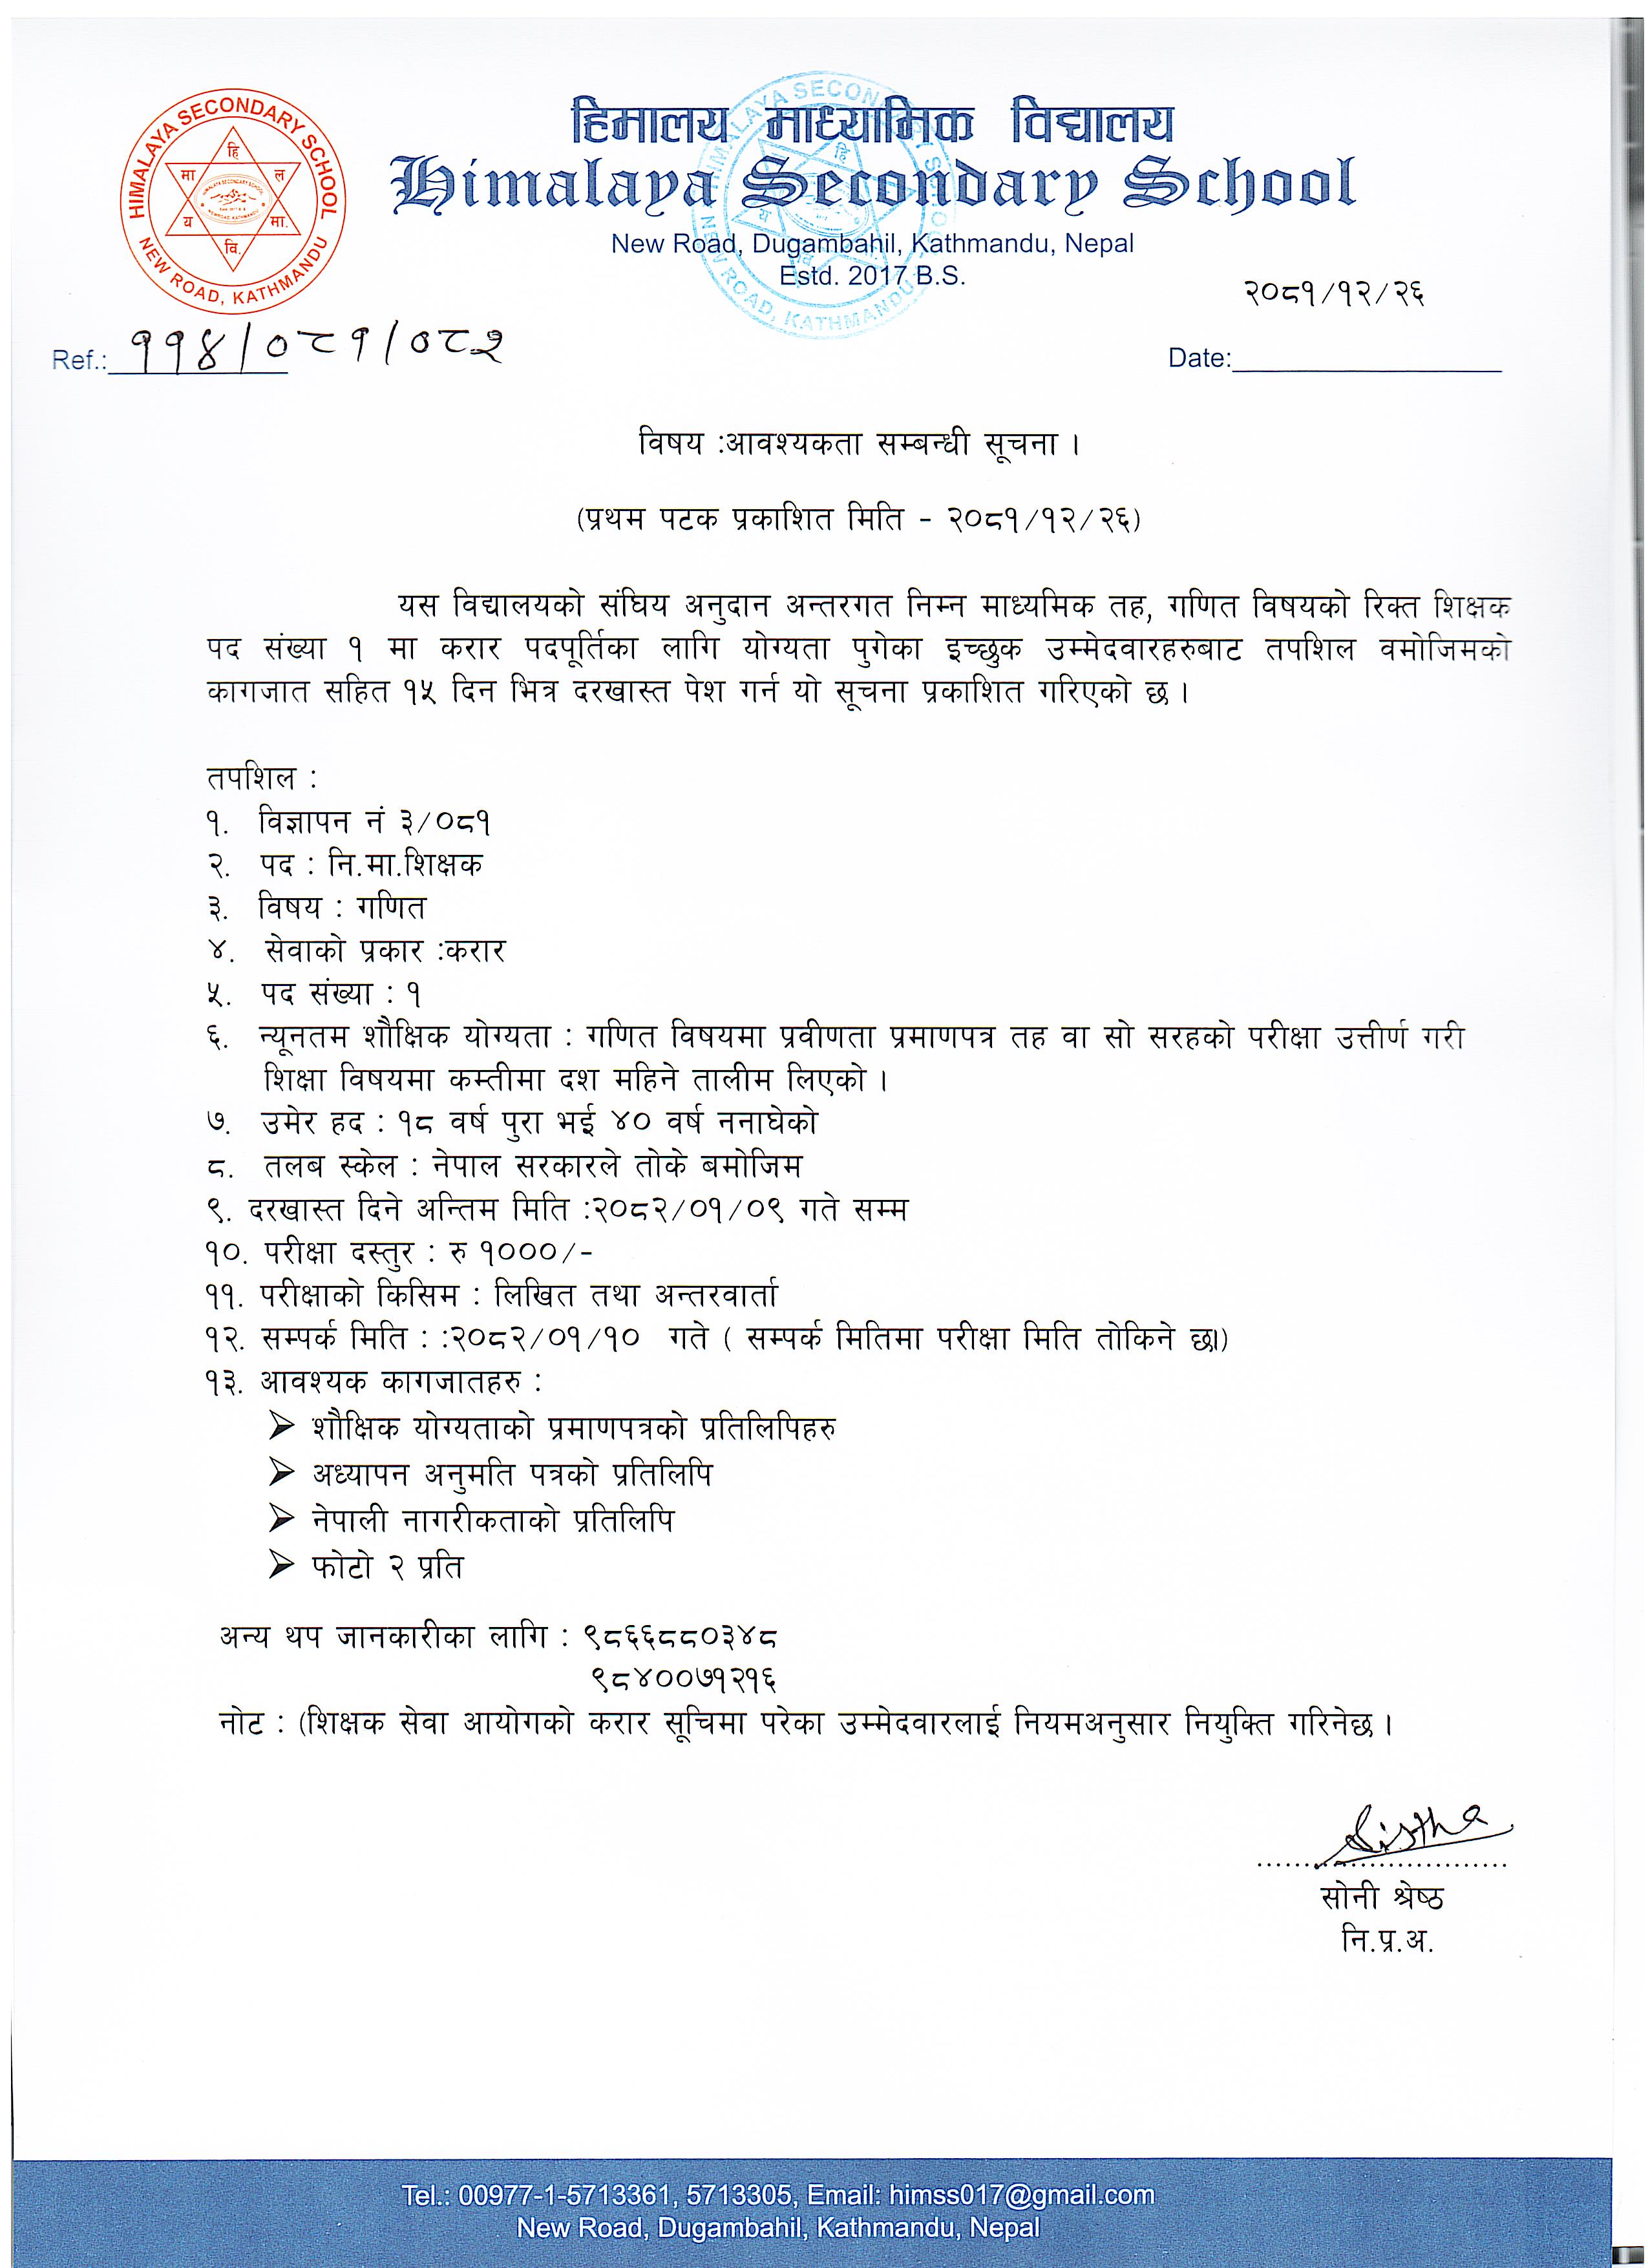 हिमालय माध्यामिक विद्यालय
Himalaya Secondary School
New Road, Dugambahil, Kathmandu, Nepal
Estd. 2017 B.S.
HIMALAYA SECONDARY SCHOOL
NEW ROAD, KATHMANDU
हि
मा ल
य मा.
वि.
२०८१/१२/२६
Ref.: ११४/०८१/०८२
Date:
विषय :आवश्यकता सम्बन्धी सूचना ।
(प्रथम पटक प्रकाशित मिति - २०८१/१२/२६)
यस विद्यालयको संघिय अनुदान अन्तरगत निम्न माध्यमिक तह, गणित विषयको रिक्त शिक्षक
पद संख्या १ मा करार पदपूर्तिका लागि योग्यता पुगेका इच्छुक उम्मेदवारहरुबाट तपशिल वमोजिमको
कागजात सहित १५ दिन भित्र दरखास्त पेश गर्न यो सूचना प्रकाशित गरिएको छ ।
तपशिल :
१. विज्ञापन नं ३/०८१
२. पद : नि.मा.शिक्षक
३. विषय : गणित
४. सेवाको प्रकार :करार
५. पद संख्या : १
६. न्यूनतम शौक्षिक योग्यता : गणित विषयमा प्रवीणता प्रमाणपत्र तह वा सो सरहको परीक्षा उत्तीर्ण गरी
शिक्षा विषयमा कम्तीमा दश महिने तालीम लिएको ।
७. उमेर हद : १८ वर्ष पुरा भई ४० वर्ष ननाघेको
८. तलब स्केल : नेपाल सरकारले तोके बमोजिम
९. दरखास्त दिने अन्तिम मिति :२०८२/०१/०९ गते सम्म
१०. परीक्षा दस्तुर : रु १०००/-
११. परीक्षाको किसिम : लिखित तथा अन्तरवार्ता
१२. सम्पर्क मिति : :२०८२/०१/१० गते ( सम्पर्क मितिमा परीक्षा मिति तोकिने छ।)
१३. आवश्यक कागजातहरु :
➢ शौक्षिक योग्यताको प्रमाणपत्रको प्रतिलिपिहरु
➢ अध्यापन अनुमति पत्रको प्रतिलिपि
➢ नेपाली नागरीकताको प्रतिलिपि
➢ फोटो २ प्रति
अन्य थप जानकारीका लागि : ९८६६८८०३४८
९८४००७१२१६
नोट : (शिक्षक सेवा आयोगको करार सूचिमा परेका उम्मेदवारलाई नियमअनुसार नियुक्ति गरिनेछ ।
सोनी श्रेष्ठ
नि.प्र.अ.
Tel.: 00977-1-5713361, 5713305, Email: himss017@gmail.com
New Road, Dugambahil, Kathmandu, Nepal